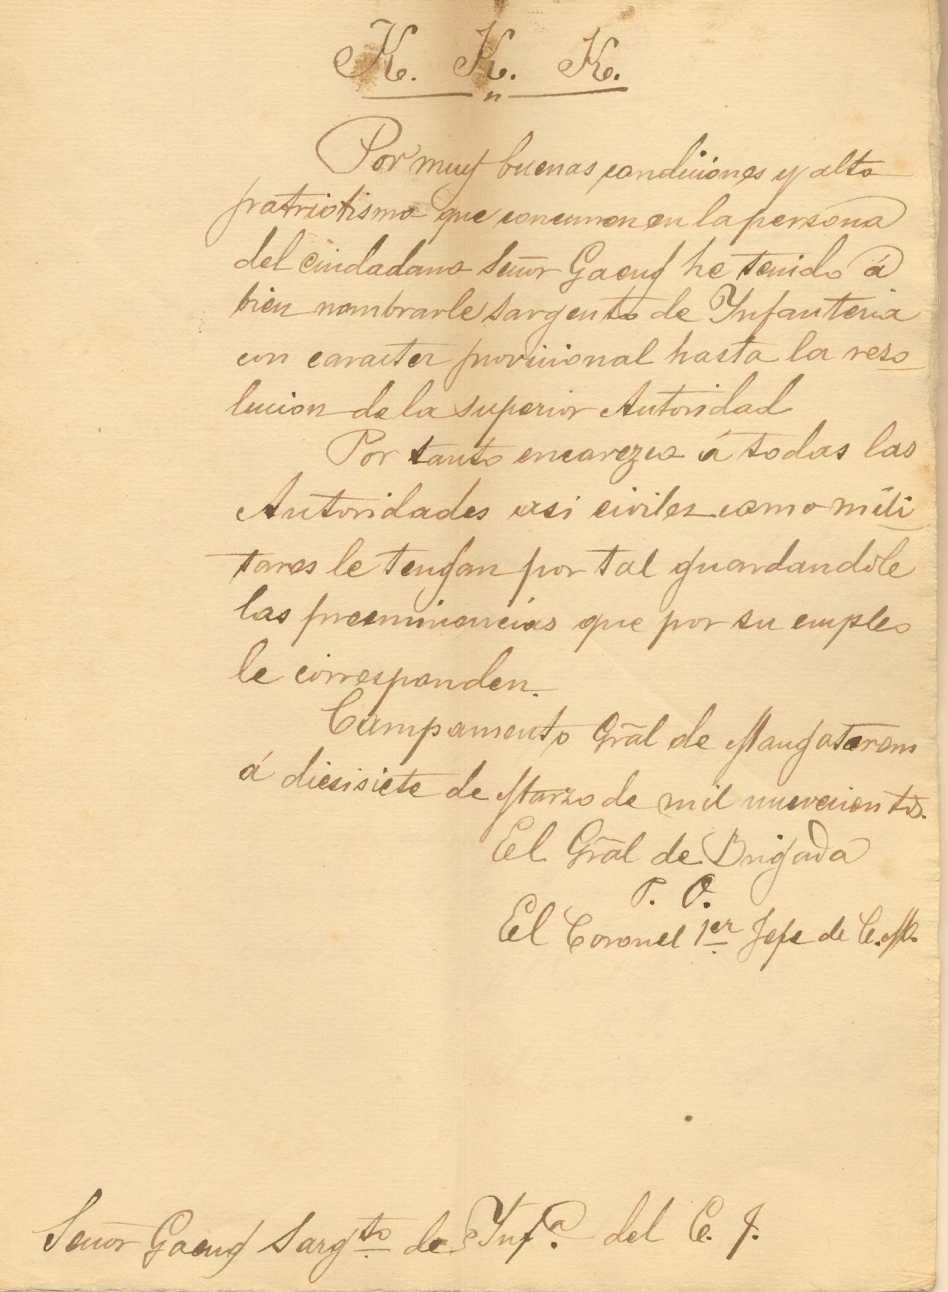 K. K. K.
Por muy buenas condiciones y alto
patriotismo que concurren en la persona
del ciudadano Señor Gaeng he tenido á
bien nombrarle Sargento de Infanteria
con caracter provicional hasta la reso
lucion de la superior Autoridad
Por tanto encarezco á todas las
Autoridades asi civiles como mili
tares le tengan por tal guardandole
las preeminencias que por su empleo
le corresponden.
Campamento Gral de Mangatarem
á diesisiete de Marzo de mil nuevecientos.
El Gral de Brigada
P. O.
El Coronel 1er Jefe de C. M.
Señor Gaeng Sargto de Infa. del E. J.